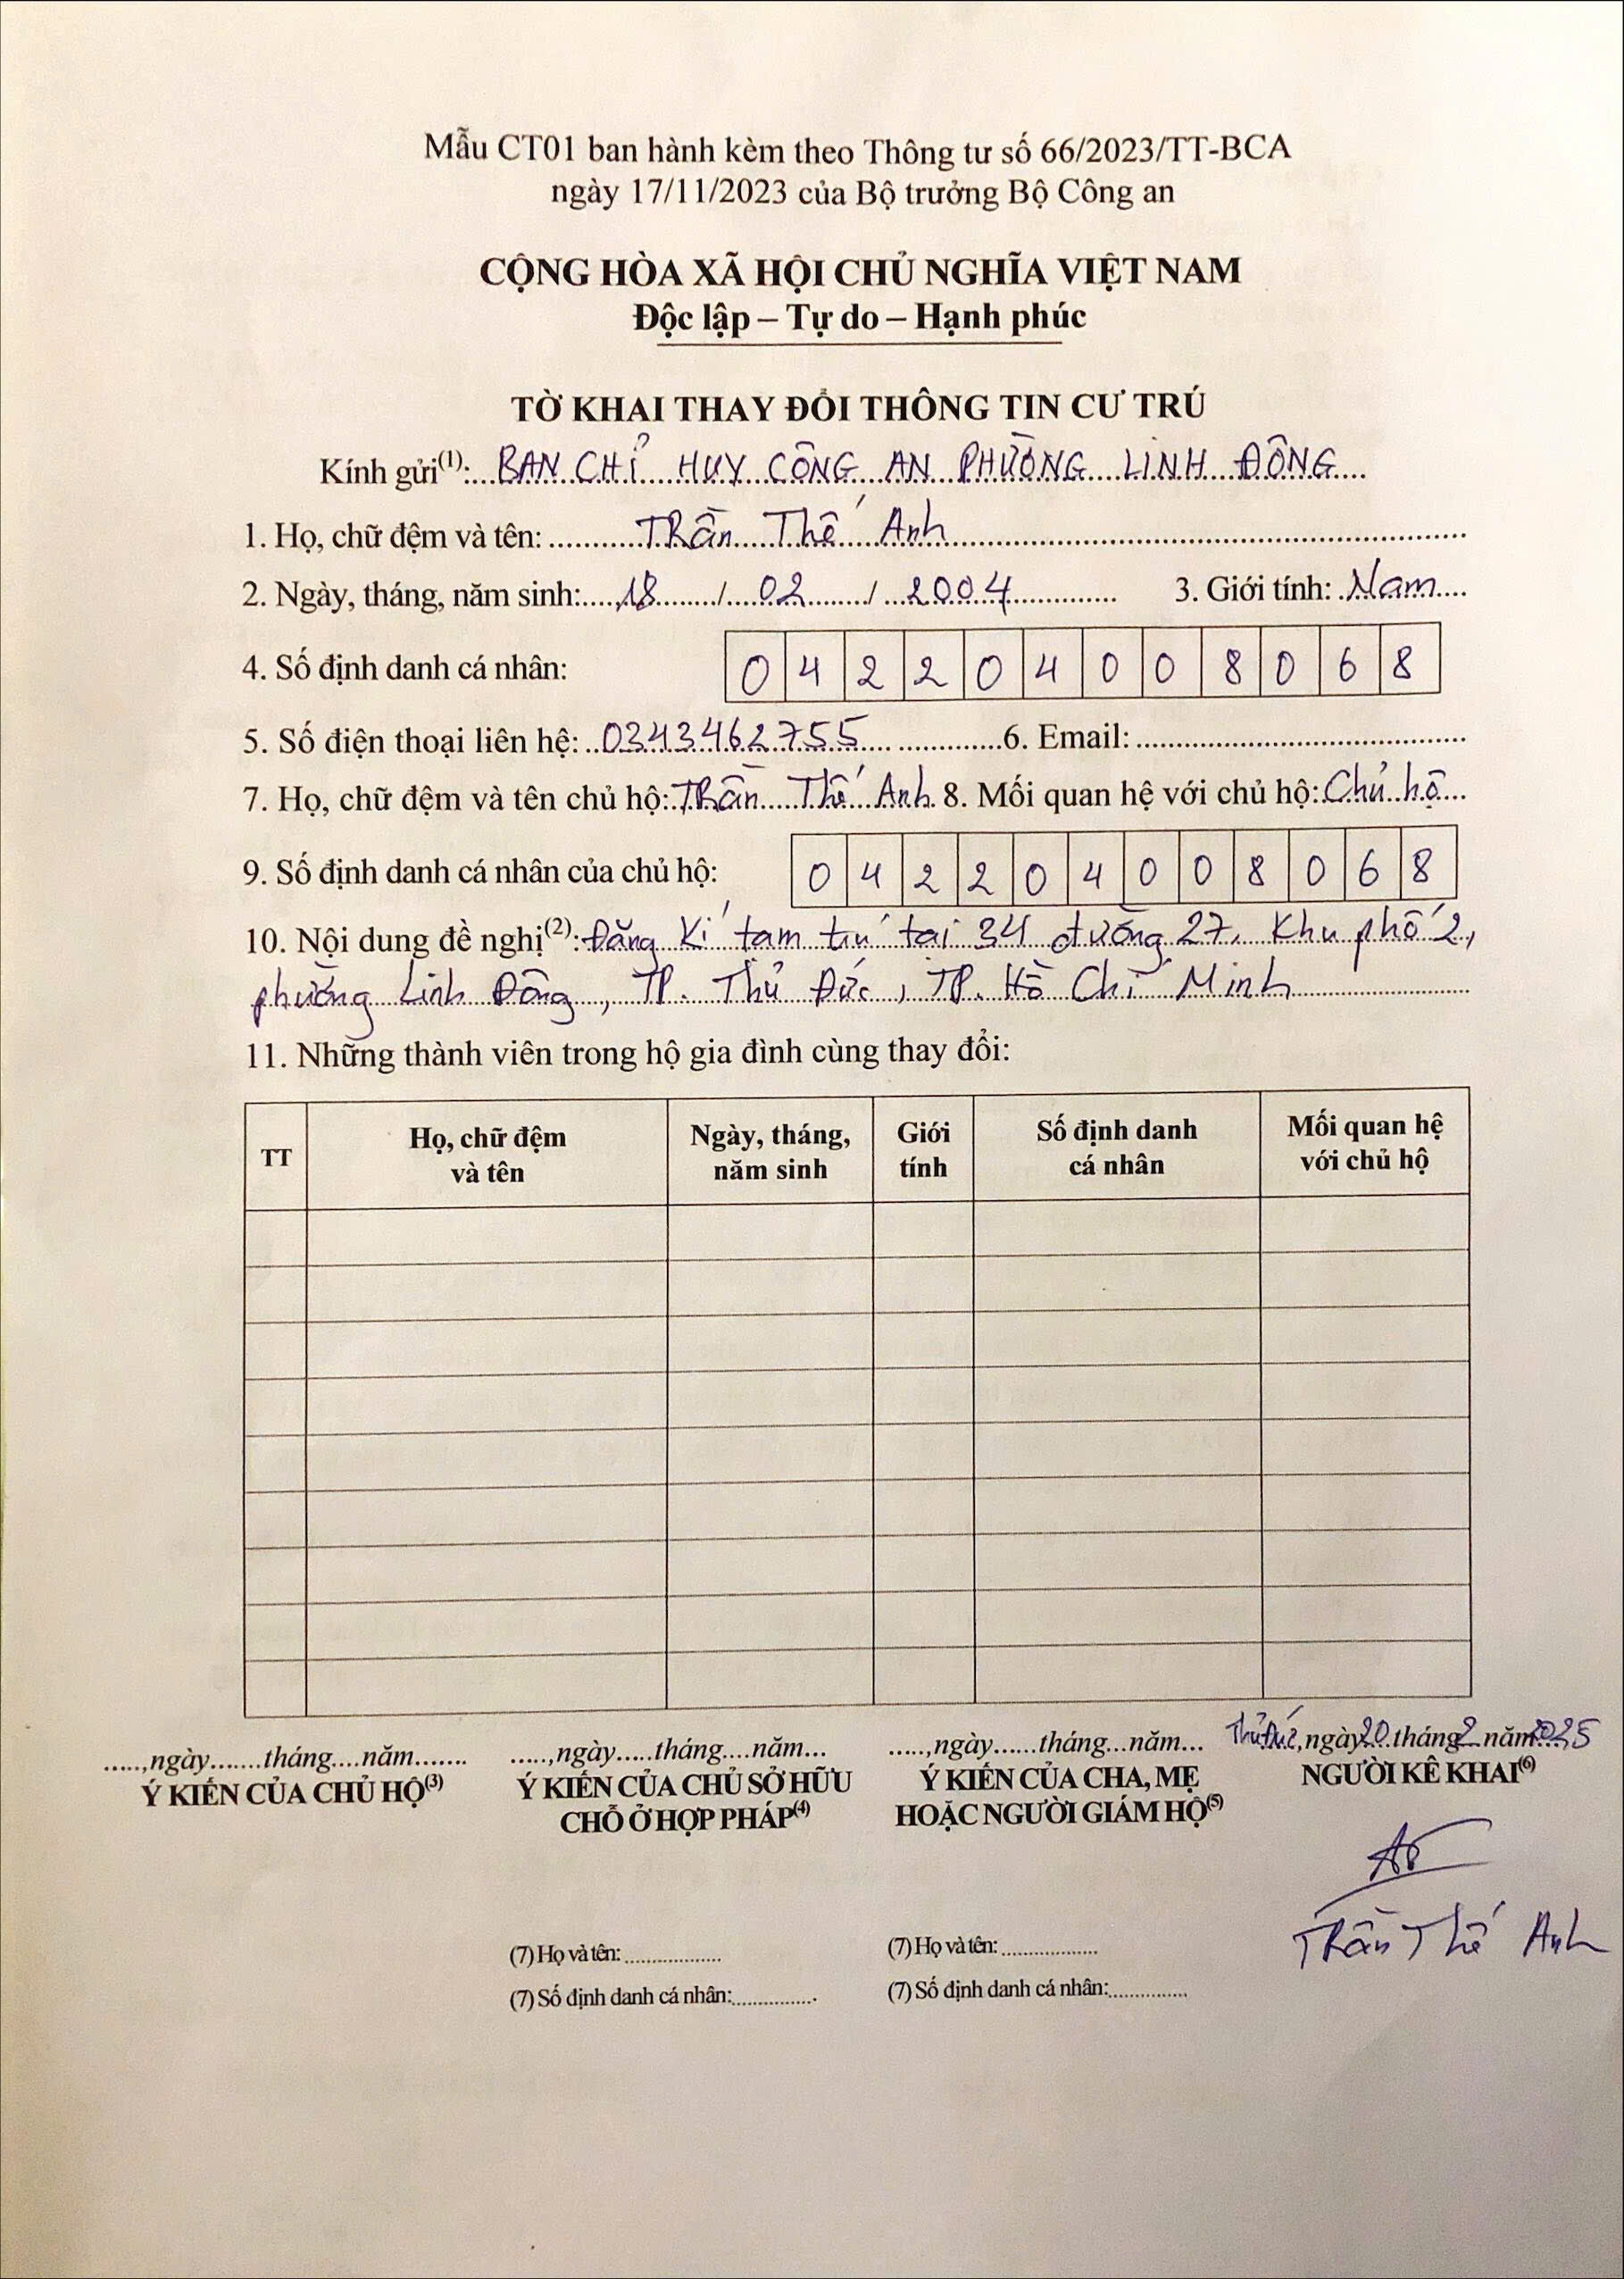 Mẫu CT01 ban hành kèm theo Thông tư số 66/2023/TT-BCA
ngày 17/11/2023 của Bộ trưởng Bộ Công an
CỘNG HÒA XÃ HỘI CHỦ NGHĨA VIỆT NAM
Độc lập – Tự do – Hạnh phúc
TỜ KHAI THAY ĐỔI THÔNG TIN CƯ TRÚ
Kính gửi(1):...BAN CHỈ HUY CÔNG AN PHƯỜNG LINH ĐÔNG....
1. Họ, chữ đệm và tên: ...........Trần Thế Anh...........
2. Ngày, tháng, năm sinh:.....18......../.....02......../ ...2004............. 3. Giới tính: .Nam....
4. Số định danh cá nhân: 0 4 2 2 0 4 0 0 8 0 6 8
5. Số điện thoại liên hệ: ..0343462755.... .............6. Email: ........................................
7. Họ, chữ đệm và tên chủ hộ: Trần Thế Anh. 8. Mối quan hệ với chủ hộ: Chủ hộ...
9. Số định danh cá nhân của chủ hộ: 0 4 2 2 0 4 0 0 8 0 6 8
10. Nội dung đề nghị(2): Đăng kí tạm trú tại 34 đường 27, Khu phố 2,
phường Linh Đông, TP. Thủ Đức, TP. Hồ Chí Minh......................
11. Những thành viên trong hộ gia đình cùng thay đổi:
TT Họ, chữ đệm và tên Ngày, tháng, năm sinh Giới tính Số định danh cá nhân Mối quan hệ với chủ hộ
.....,ngày.......tháng....năm.......
Ý KIẾN CỦA CHỦ HỘ(3)
.....,ngày.....tháng....năm...
Ý KIẾN CỦA CHỦ SỞ HỮU
CHỖ Ở HỢP PHÁP(4)
(7) Họ và tên: ..................
(7) Số định danh cá nhân:................
.....,ngày......tháng...năm...
Ý KIẾN CỦA CHA, MẸ
HOẶC NGƯỜI GIÁM HỘ(5)
(7) Họ và tên: ..................
(7) Số định danh cá nhân:...............
Thủ Đức, ngày 20 tháng 2 năm 2025
NGƯỜI KÊ KHAI(6)
Trần Thế Anh